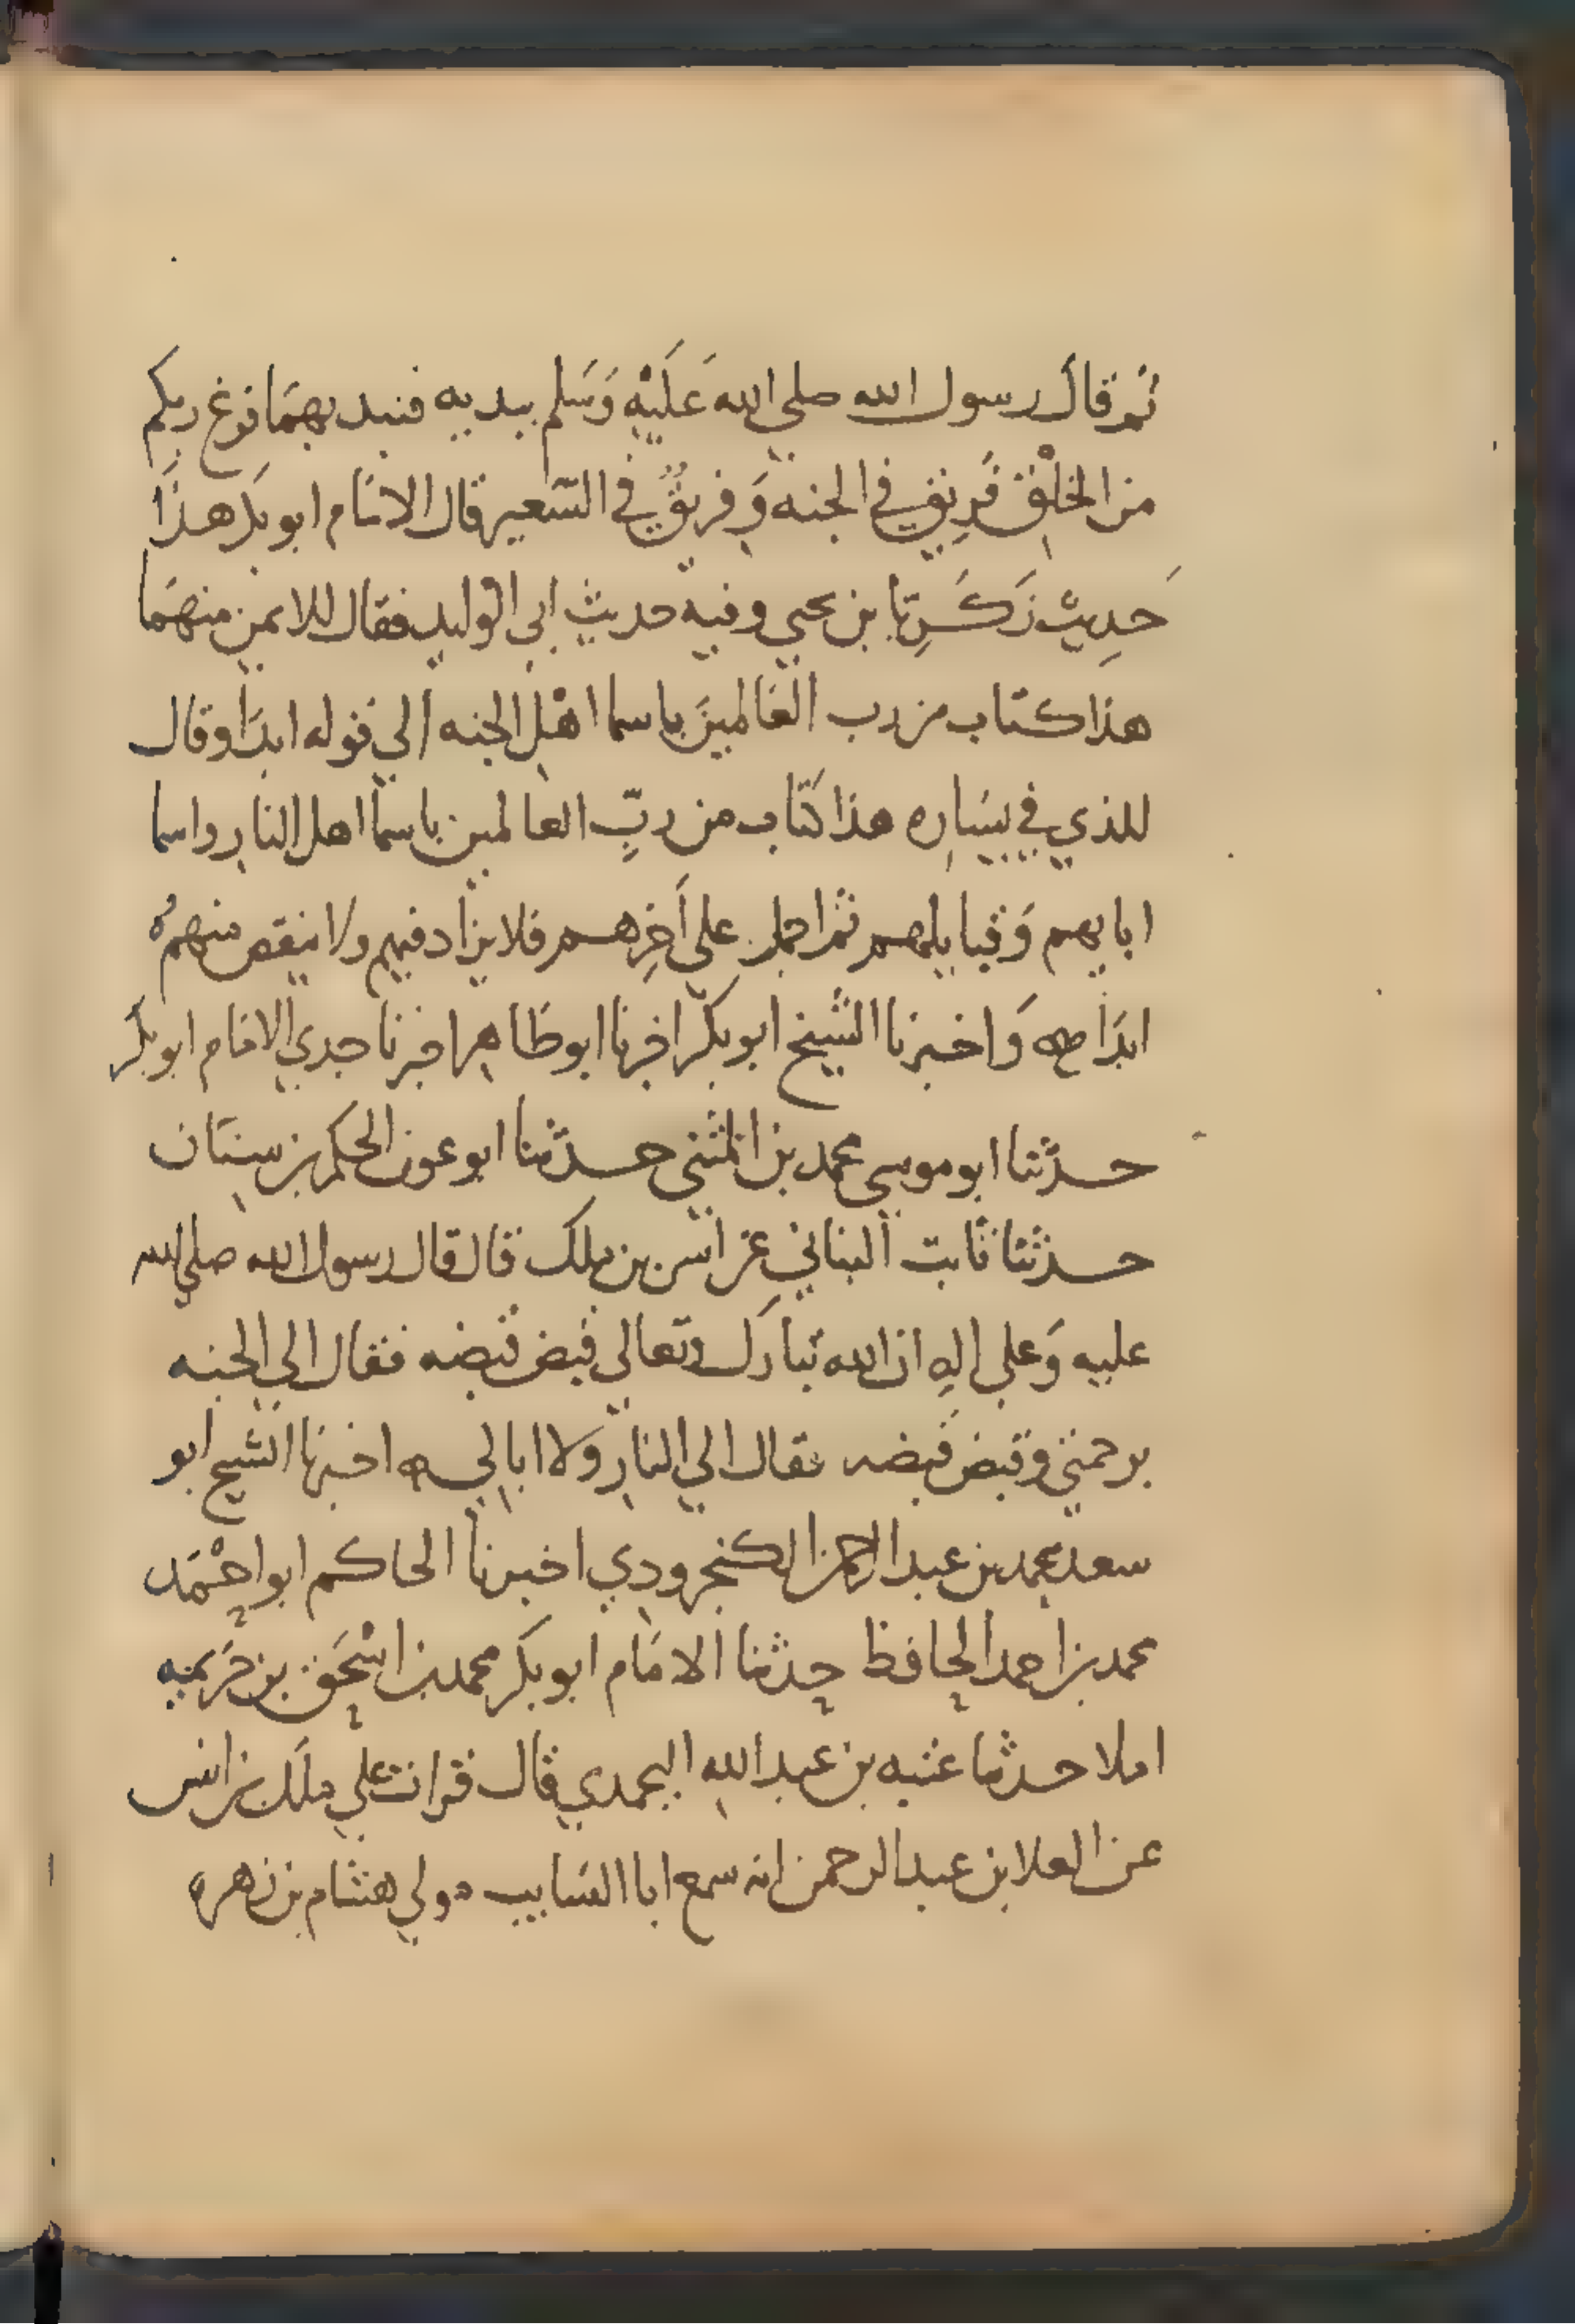 ثم قال رسول الله صلي الله عَلَيْه وَسَلم بيديه فنبذ بهمَا فرغ ربكم
من الخلْق فَرِيق في الجنه وَفريقٌ في السَّعير قال الامَام ابو بكر هذَا
حَدِيث زَكَرِيَّا بن يحيي وفيه حديث ابي الوليد فقال للايمن منهمَا
هذا كتاب من رب العَالمينَ باسما اهْل الجنه الي قوله ابدَا وقال
للذي في يسَاره هذا كتَاب من ربِّ العالمين باسما اهل النار واسما
ابايهم وَقبايلهم ثم اجمل علي آخِرهم فلا يزاد فيهم ولا ينقص منهمْ
ابدَا وَاخبرنا الشيخ ابو بكر اخبرنا ابو طَاهر اخبرنا جدي الامَام ابو بكر
حدثنا ابو موسي محمد بن المثني حدثنا ابو عون الحكم بن سنَان
حدثنا ثابت البناني عن انس بن ملك قال قال رسول الله صلي الله
عليه وَعلي الهِ ان الله تبَارَك وتعالي قبض قبضه فقال الي الجنه
برحمتي وقبض قبضه فقال الي النار وَلا ابالي ه اخبرنا الشيخ ابو
سعد محمد بن عبد الرحمن الكنجرودي اخبرنا الحاكم ابو احْمَد
محمد بن احمد الحافظ حدثنا الامَام ابو بكر محمد بن اسْحَق بن خزَيمه
املا حدثنا عتبه بن عبد اللهِ اليحمدي قال قرات علي ملك بن انس
عن العلا بن عبد الرحمن انه سمع ابا السَايب مولي هشام بن زهره